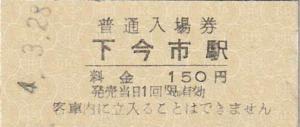 4. 3.28
普通入場券
下今市駅
料金 150円
発売当日1回限り有効
客車内に立入ることはできません